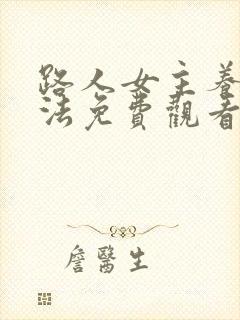 路人女主養
法免費觀看
詹醫生